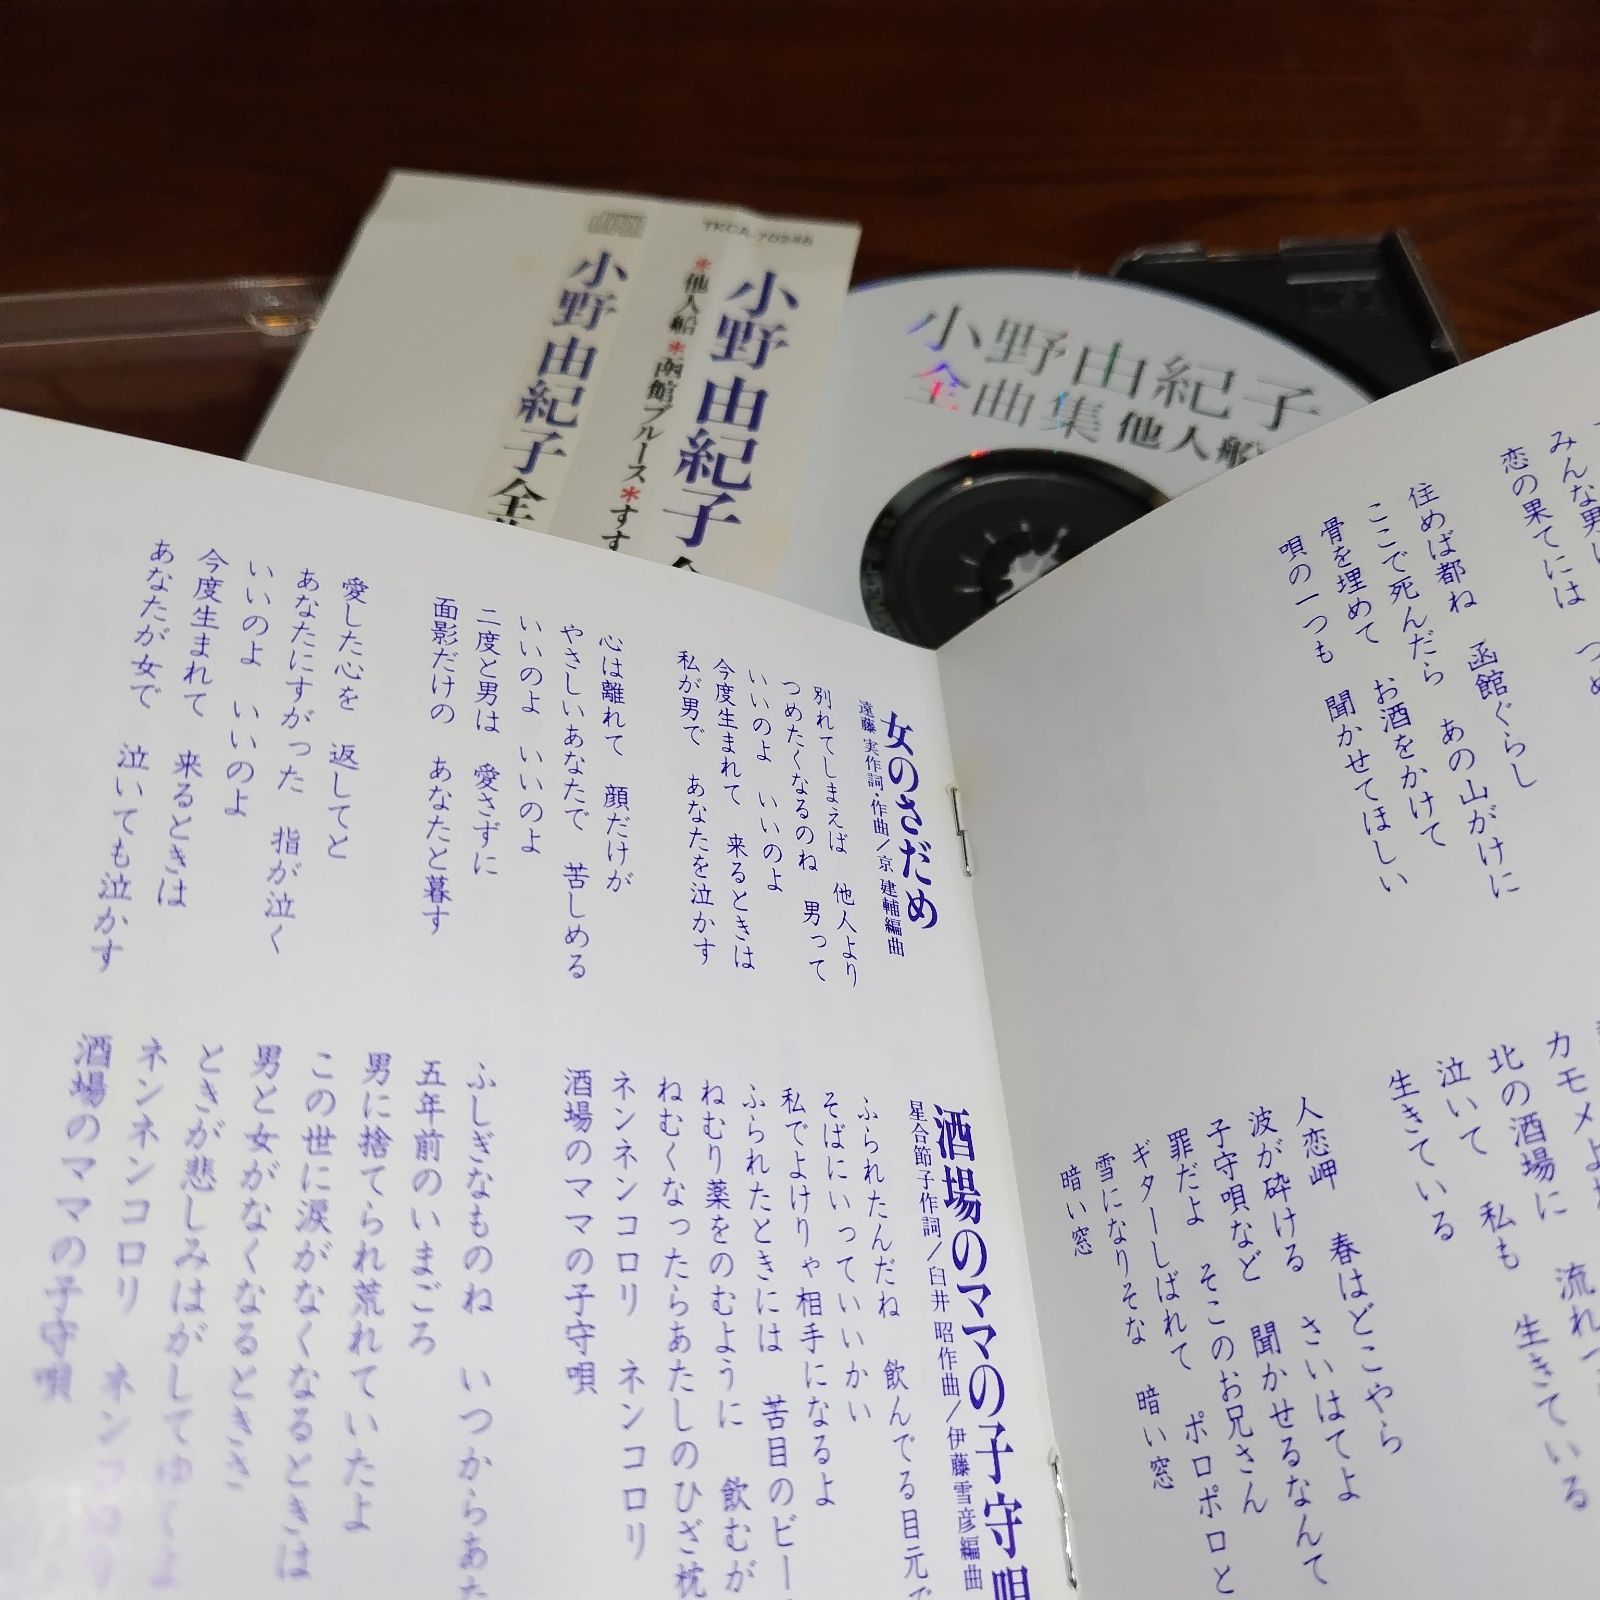 TKCA-70285
小野由紀子
*他人船*函館ブルース*すす
小野由紀子全
小野由紀子
全曲集 他人船
みんな男
恋の果てには
住めば都ね 函館ぐらし
ここで死んだら あの山がけに
骨を埋めて お酒をかけて
唄の一つも 聞かせてほしい
カモメよ
北の酒場に 流れ
泣いて 私も 生きている
生きている
人恋岬 春はどこやら
波が砕ける さいはてよ
子守唄など 聞かせるなんて
罪だよ そこのお兄さん
ギターしばれて ポロポロと
雪になりそな 暗い窓
暗い窓
女のさだめ
遠藤 実作詞・作曲/京 建輔編曲
別れてしまえば 他人より
つめたくなるのね 男って
いいのよ いいのよ
今度生まれて 来るときは
私が男で あなたを泣かす
心は離れて 顔だけが
やさしいあなたで 苦しめる
いいのよ いいのよ
二度と男は 愛さずに
面影だけの あなたと暮す
愛した心を 返してと
あなたにすがった 指が泣く
いいのよ いいのよ
今度生まれて 来るときは
あなたが女で 泣いても泣かす
酒場のママの子守唄
星合節子作詞/白井 昭作曲/伊藤雪彦編曲
ふられたんだね 飲んでる目元で
そばにいっていいかい
私でよけりゃ相手になるよ
ふられたときには 苦目のビー
ねむり薬をのむように 飲むが
ねむくなったらあたしのひざ枕
ネンネンコロリ ネンコロリ
酒場のママの子守唄
ふしぎなものね いつからあた
五年前のいまごろ
男に捨てられ荒れていたよ
この世に涙がなくなるときは
男と女がなくなるときさ
ときが悲しみはがしてゆくよ
ネンネンコロリ ネンコロリ
酒場のママの子守唄